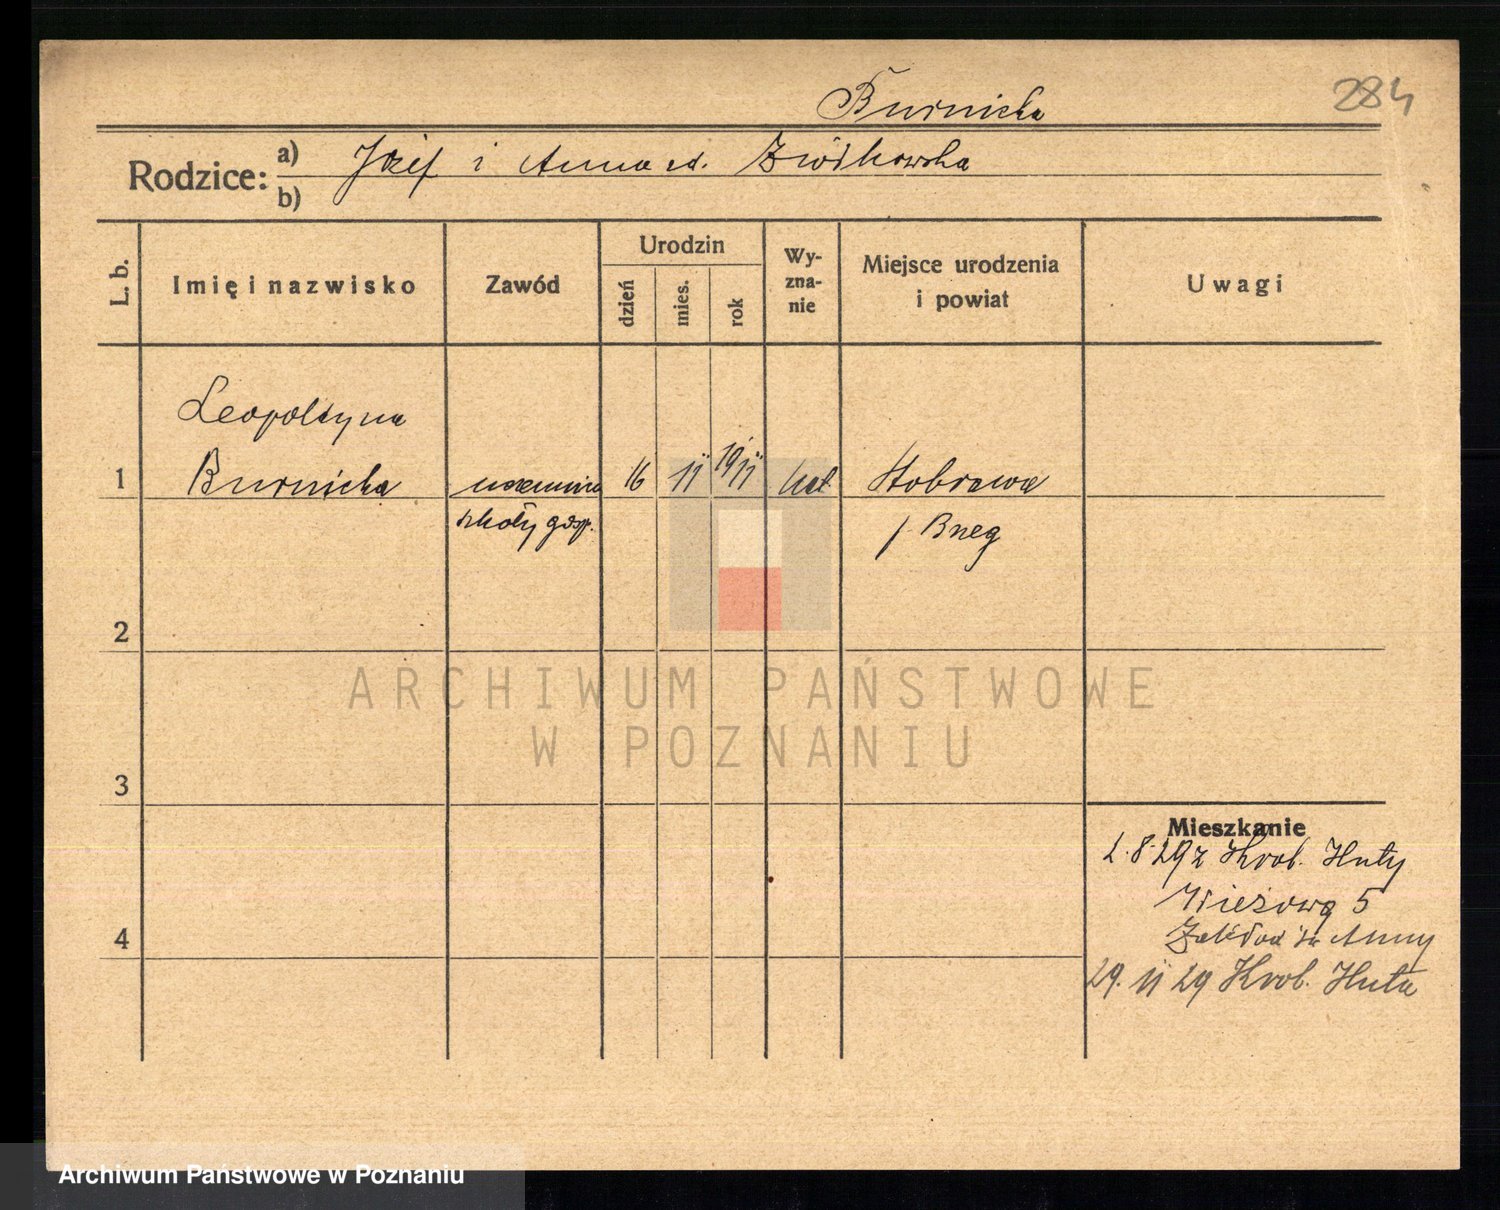 Burnicka
284
Rodzice:
a) Józef i Anna zd. Ziółkowska
b)
L. b.
Imię i nazwisko
Zawód
Urodzin
dzień
mies.
rok
Wy-
zna-
nie
Miejsce urodzenia
i powiat
Uwagi
Leopoldyna
1 Burnicka uczennica 16 11 1911 kat Stobrawa
szkoły gosp. p. Brzeg
2
ARCHIWUM PAŃSTWOWE
W POZNANIU
3
Mieszkanie
2.8.29 z Król. Huty
Wieżowa 5
Zakład św Anny
4
29. 11 29 Król. Huta
Archiwum Państwowe w Poznaniu